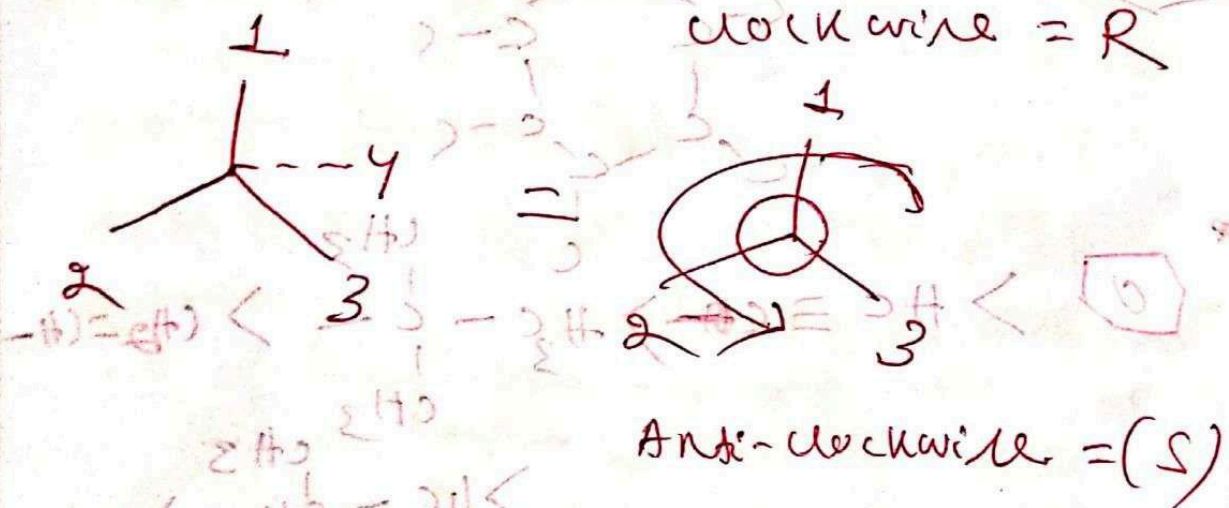 1
clockwise = R
1
4
=
2
3
2
3
Anti-clockwise = (S)